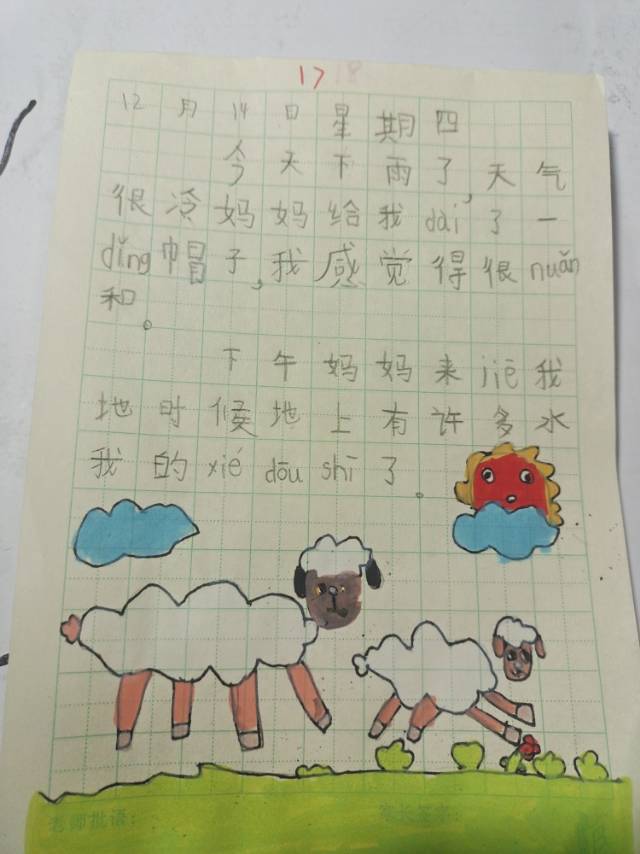 17 18
12月14日星期四
今天下雨了,天气
很冷妈妈给我dài了一
dǐng帽子,我感觉得很nuǎn
和。
下午妈妈来jiē我
地时候地上有许多水
我的xié dōu shī了。
老师批语:
家长签字: